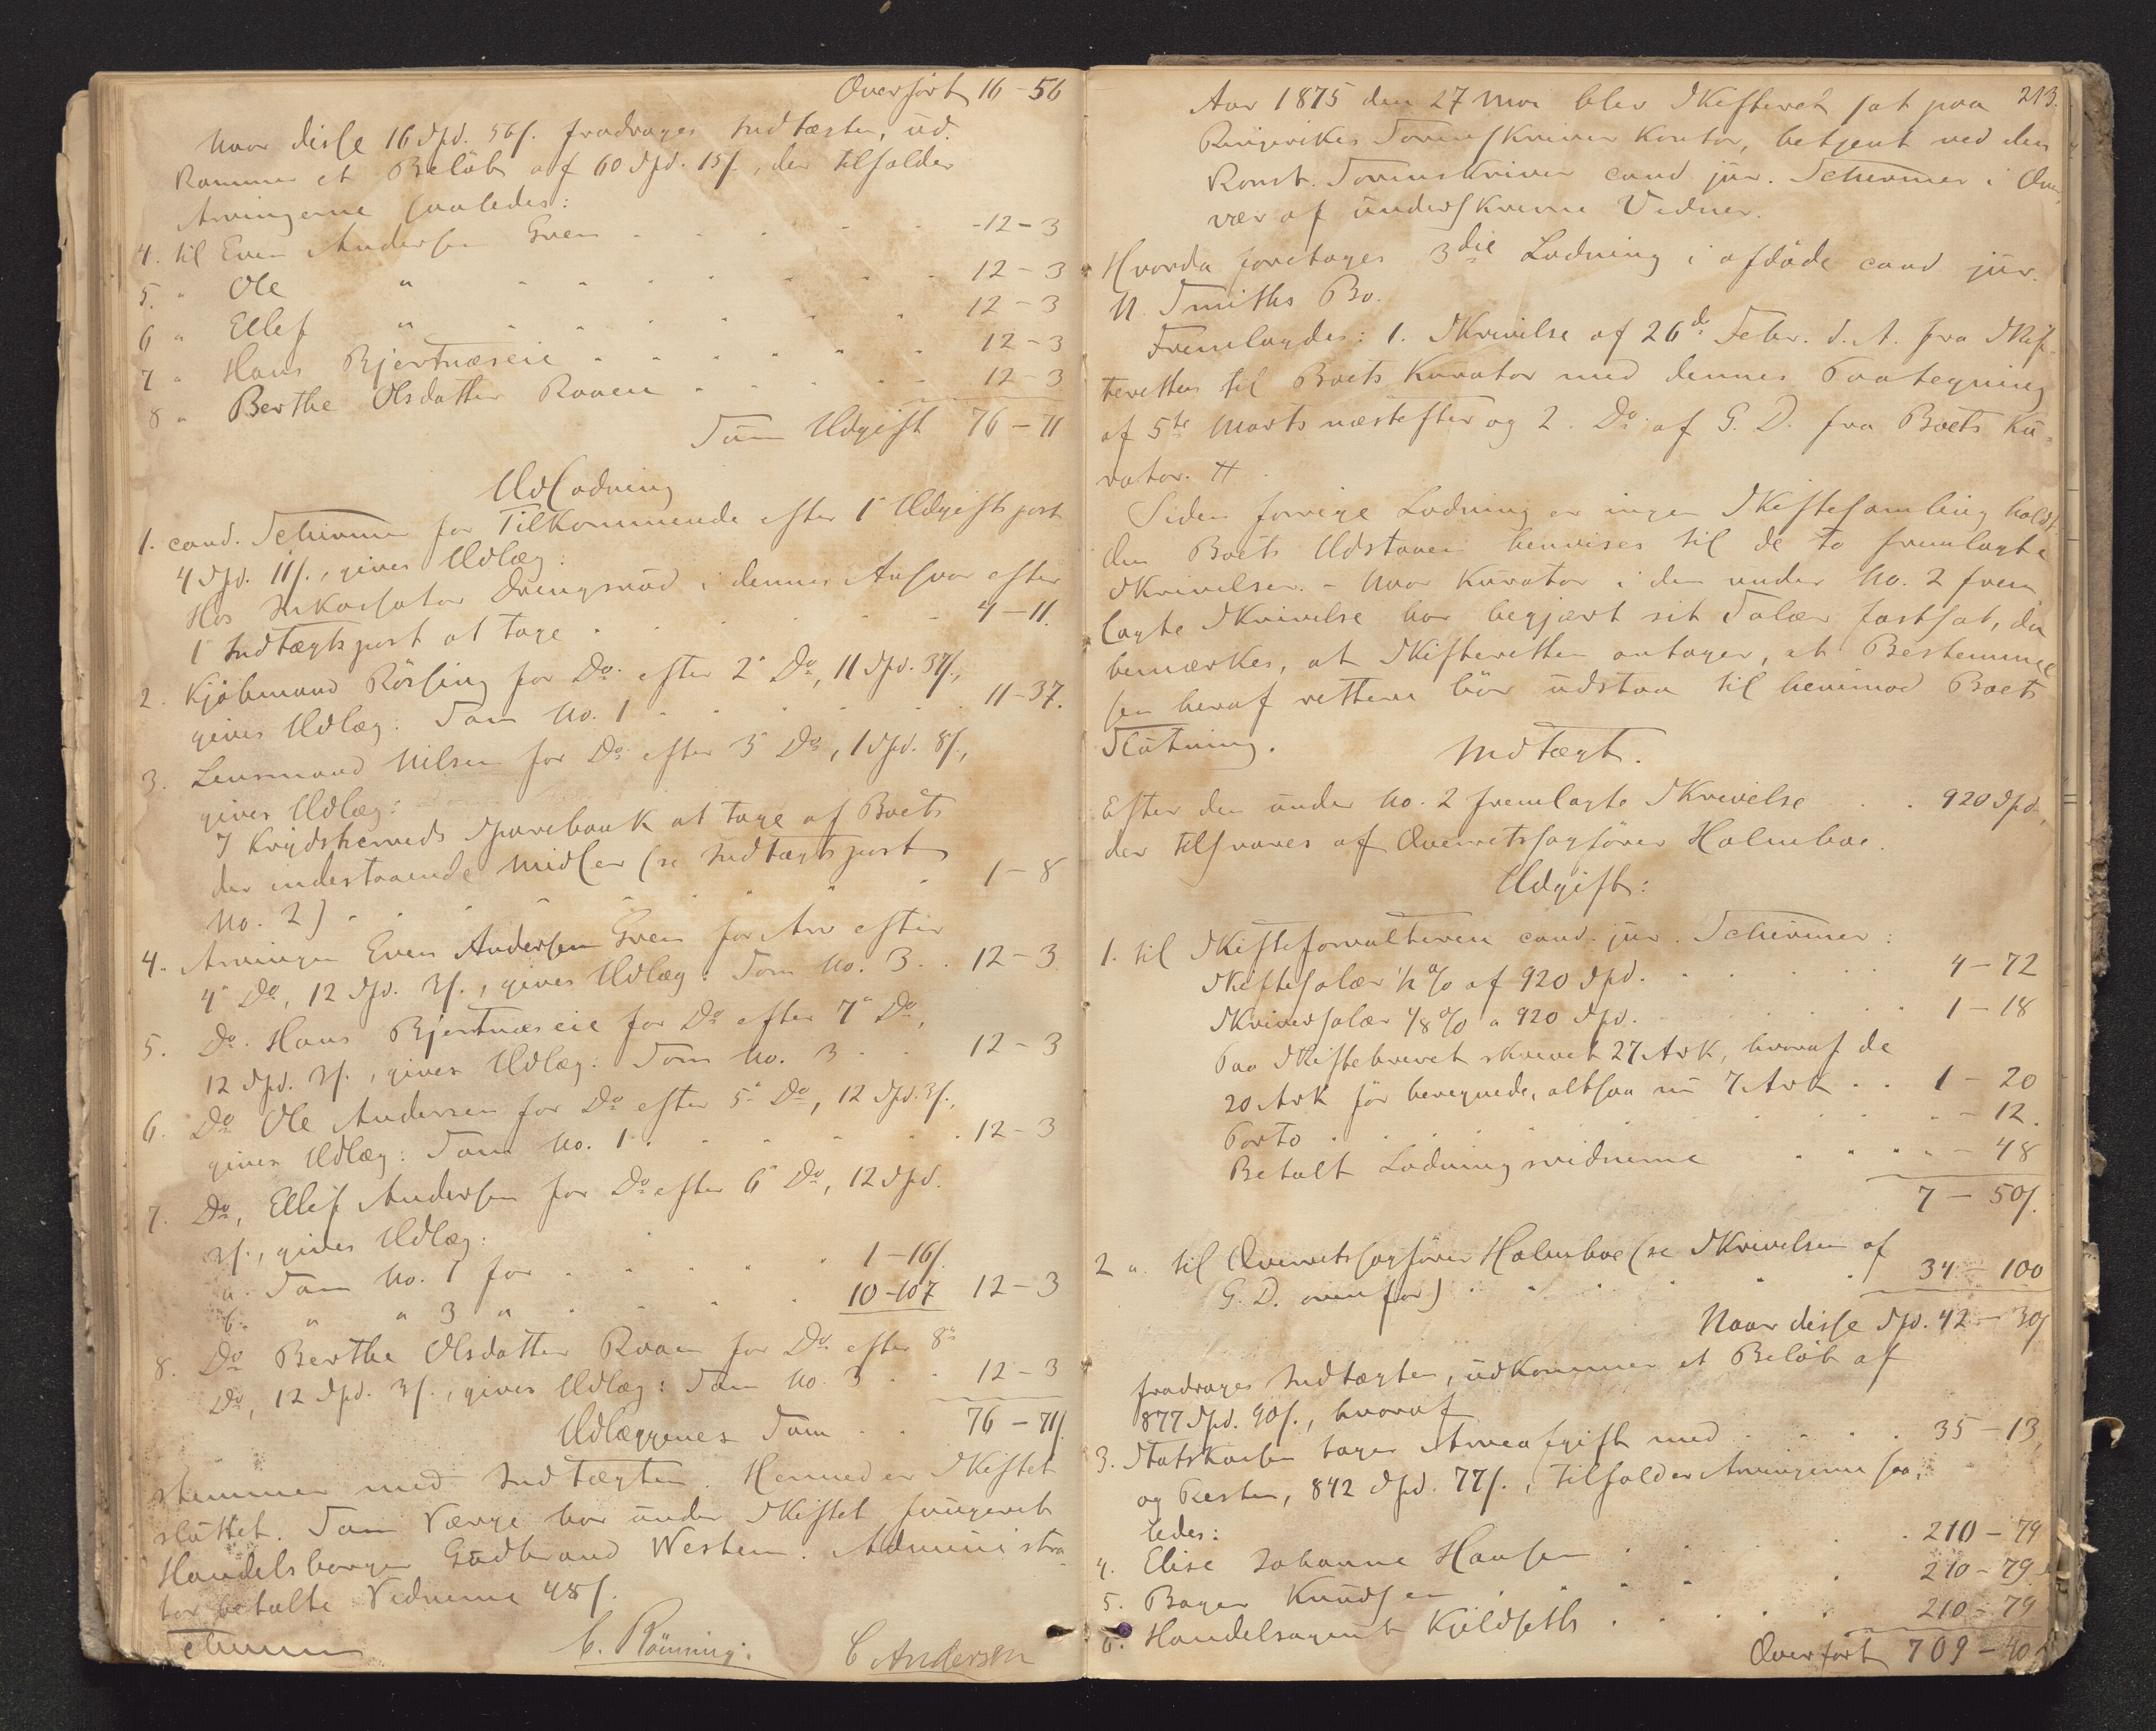 Overført 16 - 56
Naar disse 16 Spd. 56 s. fradrages Indtægten, ud-
kommer et Beløb af 60 Spd. 15 s., der tilfalder
Arvingerne saaledes:
4. til Even Andersen Gren - 12 - 3
5. " Ole " 12 - 3
6 " Ellef " 12 - 3
7 " Hans Bjertnæseie 12 - 3
8 " Berthe Olsdatter Raaen 12 - 3
Sum Udgift 76 - 71
Udlodning
1. cand. Schirmer for Tilkommende efter 1 Udgiftspost
4 Spd. 11 s., gives Udlæg:
Hos Inkassator Drengsrud i dennes Ansvar efter
1 Indtægtspost at tage 4 - 11.
2. Kjøbmand Rørsing for Do. efter 2 Do, 11 Spd. 37 s.,
gives Udlæg: Som No. 1 11 - 37.
3. Lensmand Nilsen for Do efter 3 Do, 1 Spd. 8 s.,
gives Udlæg:
I Krydsherreds Sparebank at tage af Boets
der indestaaende Midler (se Indtægtspost
No. 2) 1 - 8
4. Arvingen Even Andersen Gren for Arv efter
4 Do, 12 Spd. 3 s., gives Udlæg: Som No. 3 12 - 3
5. Do. Hans Bjertnæseie for Do efter 7 Do,
12 Spd. 3 s., gives Udlæg: Som No. 3 12 - 3
6. Do Ole Andersen for Do efter 5 Do, 12 Spd. 3 s.,
gives Udlæg: Som No. 1 12 - 3
7. Do, Ellef Andersen for Do efter 6 Do, 12 Spd.
3 s., gives Udlæg:
a. Som No. 1 for 1 - 16 s.
b. " " 3 " 10 - 107 12 - 3
8. Do Berthe Olsdatter Raaen for Do. efter 8
Do, 12 Spd. 3 s., gives Udlæg: Som No. 3 12 - 3
Udlæggenes Sum 76 - 71 s.
stemmer med Indtægten. Hermed er Skiftet
sluttet. Som Værge har under Skiftet fungeret
Handelsborger Gudbrand Western. Administra-
tor betalte Vidnerne 48 s.
Schirmer C. Rønning. C Andersen
213.
Aar 1875 den 27 Mai blev Skifteret sat paa
Ringerikes Sorenskriver Kontor, betjent ved den
Konst. Sorenskriver cand jur. Schirmer i Over-
vær af underskrevne Vidner.
Hvorda foretages 3die Lodning i afdøde cand jur.
N. Smiths Bo.
Fremlagdes: 1. Skrivelse af 26de Febr. d. A. fra Skif-
teretten til Boets Kurator med dennes Paategning
af 5te Marts næstefter og 2. Do af G. D. fra Boets Ku-
rator. #
Siden forrige Lodning er ingen Skiftesamling holdt
den Boets Udstaaen henvises til de to fremlagte
Skrivelser. - Naar Kurator i den under No. 2 frem-
lagte Skrivelse har begjært sit Salær fastsat, da
bemærkes, at Skifteretten antager, at Bestemmel-
sen heraf rettere bør udstaa til henimod Boets
Slutning.
Indtægt.
Efter den under No. 2 fremlagte Skrivelse 920 Spd.,
der tilsvares af Overretssagfører Holmboe.
Udgift:
1. til Skifteforvalteren cand. jur. Schirmer:
Skiftesalær 1/2 % af 920 Spd. 4 - 72
Skriversalær 1/8 % a 920 Spd. 1 - 18
Paa Skiftebrevet skrevet 27 Ark, hvoraf de
20 Ark før beregnede, altsaa nu 7 Ark 1 - 20
Porto - 12.
Betalt Lodningsvidnerne - 48
7 - 50 s.
2 " til Overretssagfører Holmboe (se Skrivelsen af
G. D. ovenfor) 34 - 100
Naar disse Spd. 42 - 30 s
fradrages Indtægten, udkommer et Beløb af
877 Spd. 90 s., hvoraf
3. Statskassen tager Arveafgift med 35 - 13,
og Resten, 842 Spd. 77 s., tilfalder Arvingerne saa-
ledes:
4. Elise Johanne Hansen 210 - 79
5. Bager Knudsen 210 - 79
6. Handelsagent Kjeldseth 210 - 79
Overført 709 - 40